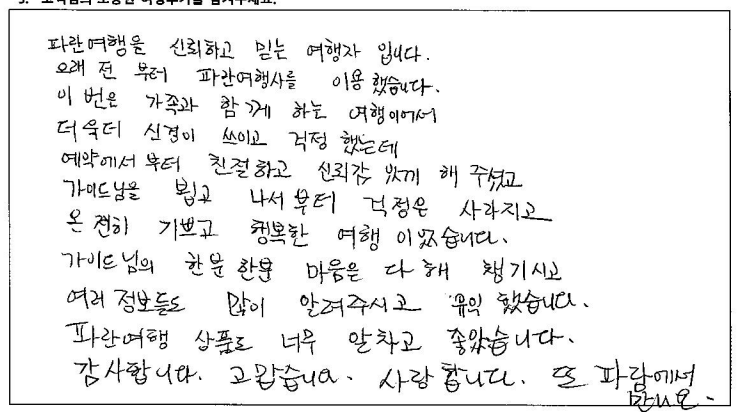 3. 고객님의 소중한 여행후기를 남겨주세요.
파란여행을 신뢰하고 믿는 여행자 입니다.
오래 전 부터 파란여행사를 이용 했습니다.
이 번은 가족과 함께 하는 여행이어서
더욱더 신경이 쓰이고 걱정 했는데
예약에서 부터 친절하고 신뢰감 있게 해 주셨고
가이드님을 뵙고 나서 부터 걱정은 사라지고
온전히 기쁘고 행복한 여행 이었습니다.
가이드님의 한분 한분 마음은 다 해 챙기시고
여러 정보들도 많이 알려주시고 유익 했습니다.
파란여행 상품도 너무 알차고 좋았습니다.
감사합니다. 고맙습니다. 사랑합니다. 또 파랑에서
만나요.